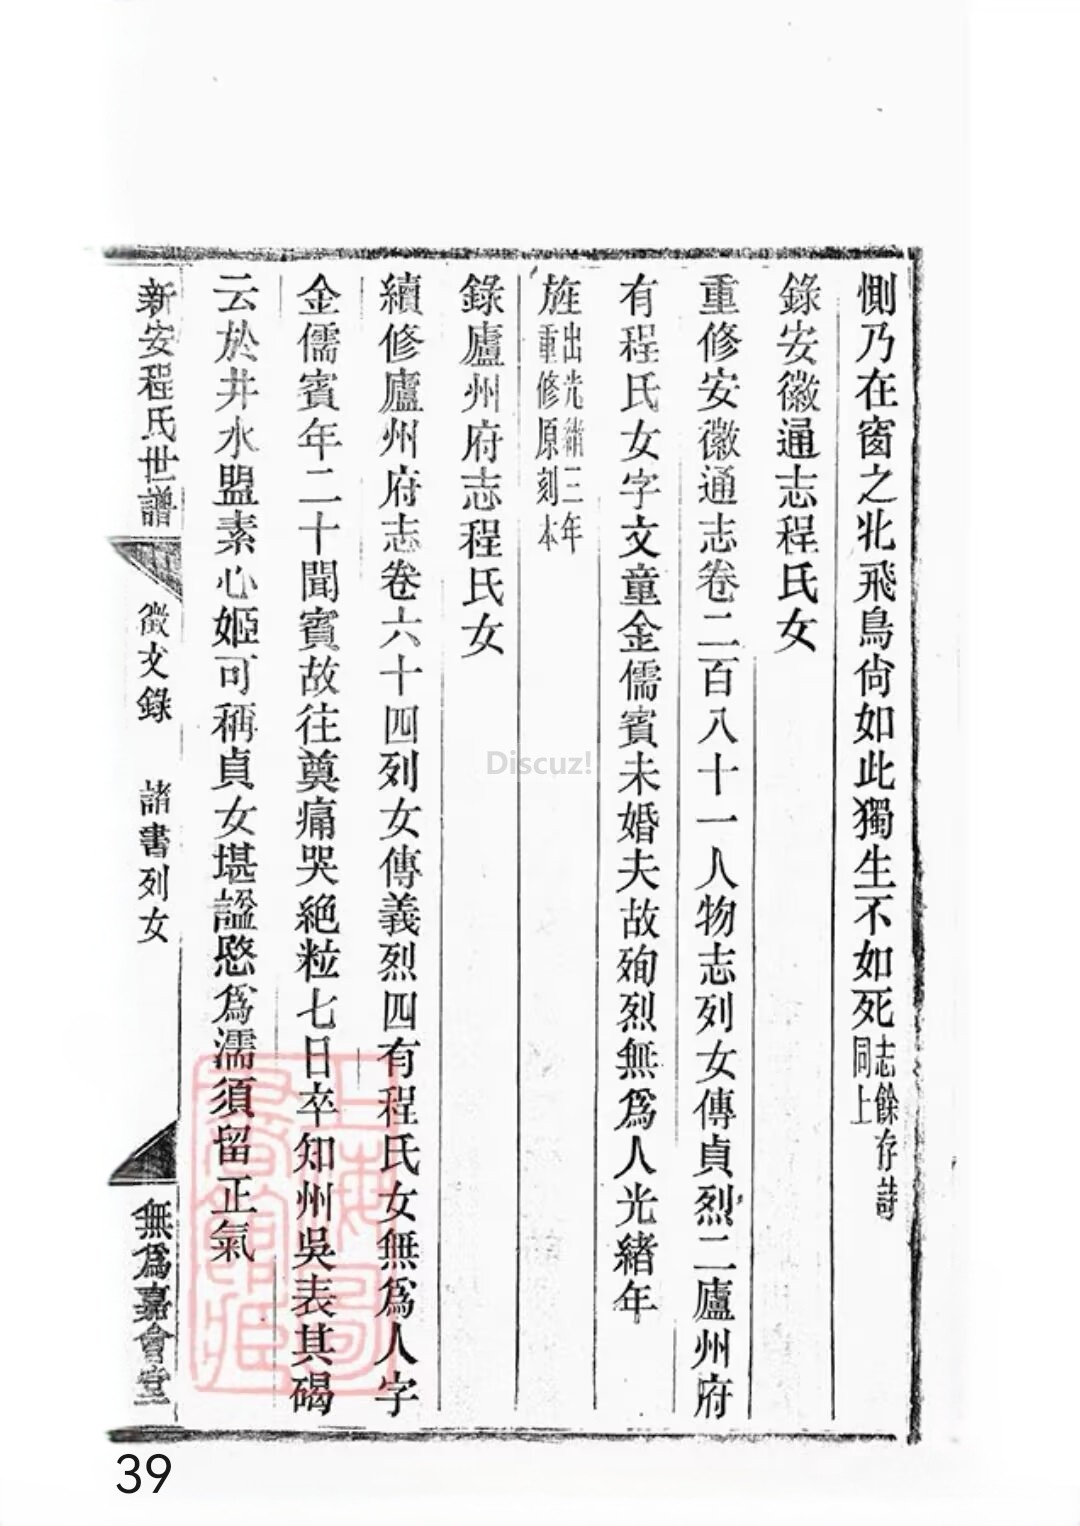 惻乃在窗之北飛鳥尙如此獨生不如死志餘存詩同上
錄安徽通志程氏女
重修安徽通志卷二百八十一人物志列女傳貞烈二廬州府
有程氏女字文童金儒賓未婚夫故殉烈無爲人光緒年
旌出光緒三年重修原刻本
錄廬州府志程氏女
續修廬州府志卷六十四列女傳義烈四有程氏女無爲人字
金儒賓年二十聞賓故往奠痛哭絕粒七日卒知州吳表其碣
云於井水盟素心姬可稱貞女堪諡愍爲濡須留正氣
新安程氏世譜
徵文錄
諸書列女
無爲嘉會堂
上海圖書館藏
Discuz!
39